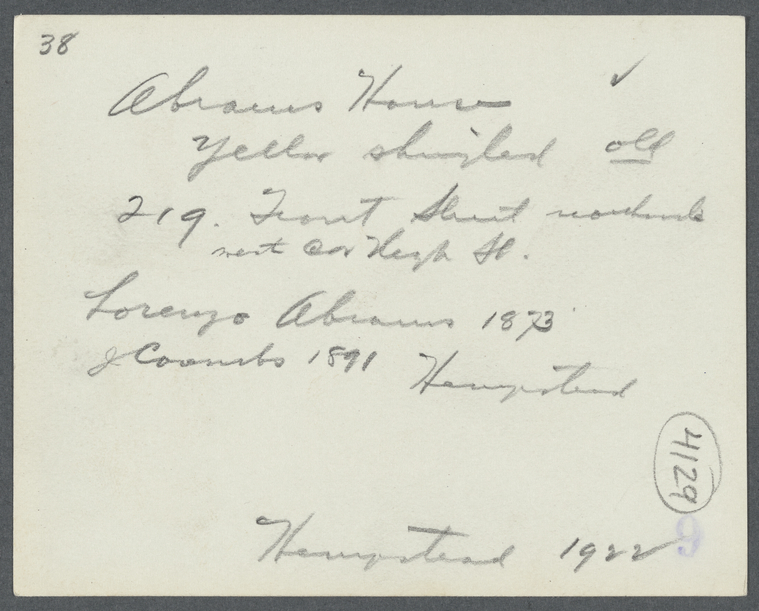 38
✓
Abrams House
Yellow shingled old
219. Front Street northside
next cor High St.
Lorenzo Abrams 1873
J Coombs 1891
Hempstead
4129
Hempstead 1922